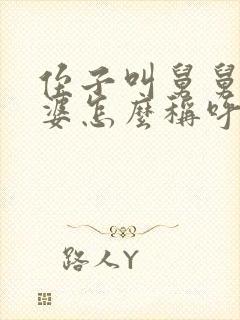 侄子叫舅舅
婆怎麼稱呼
路人Y